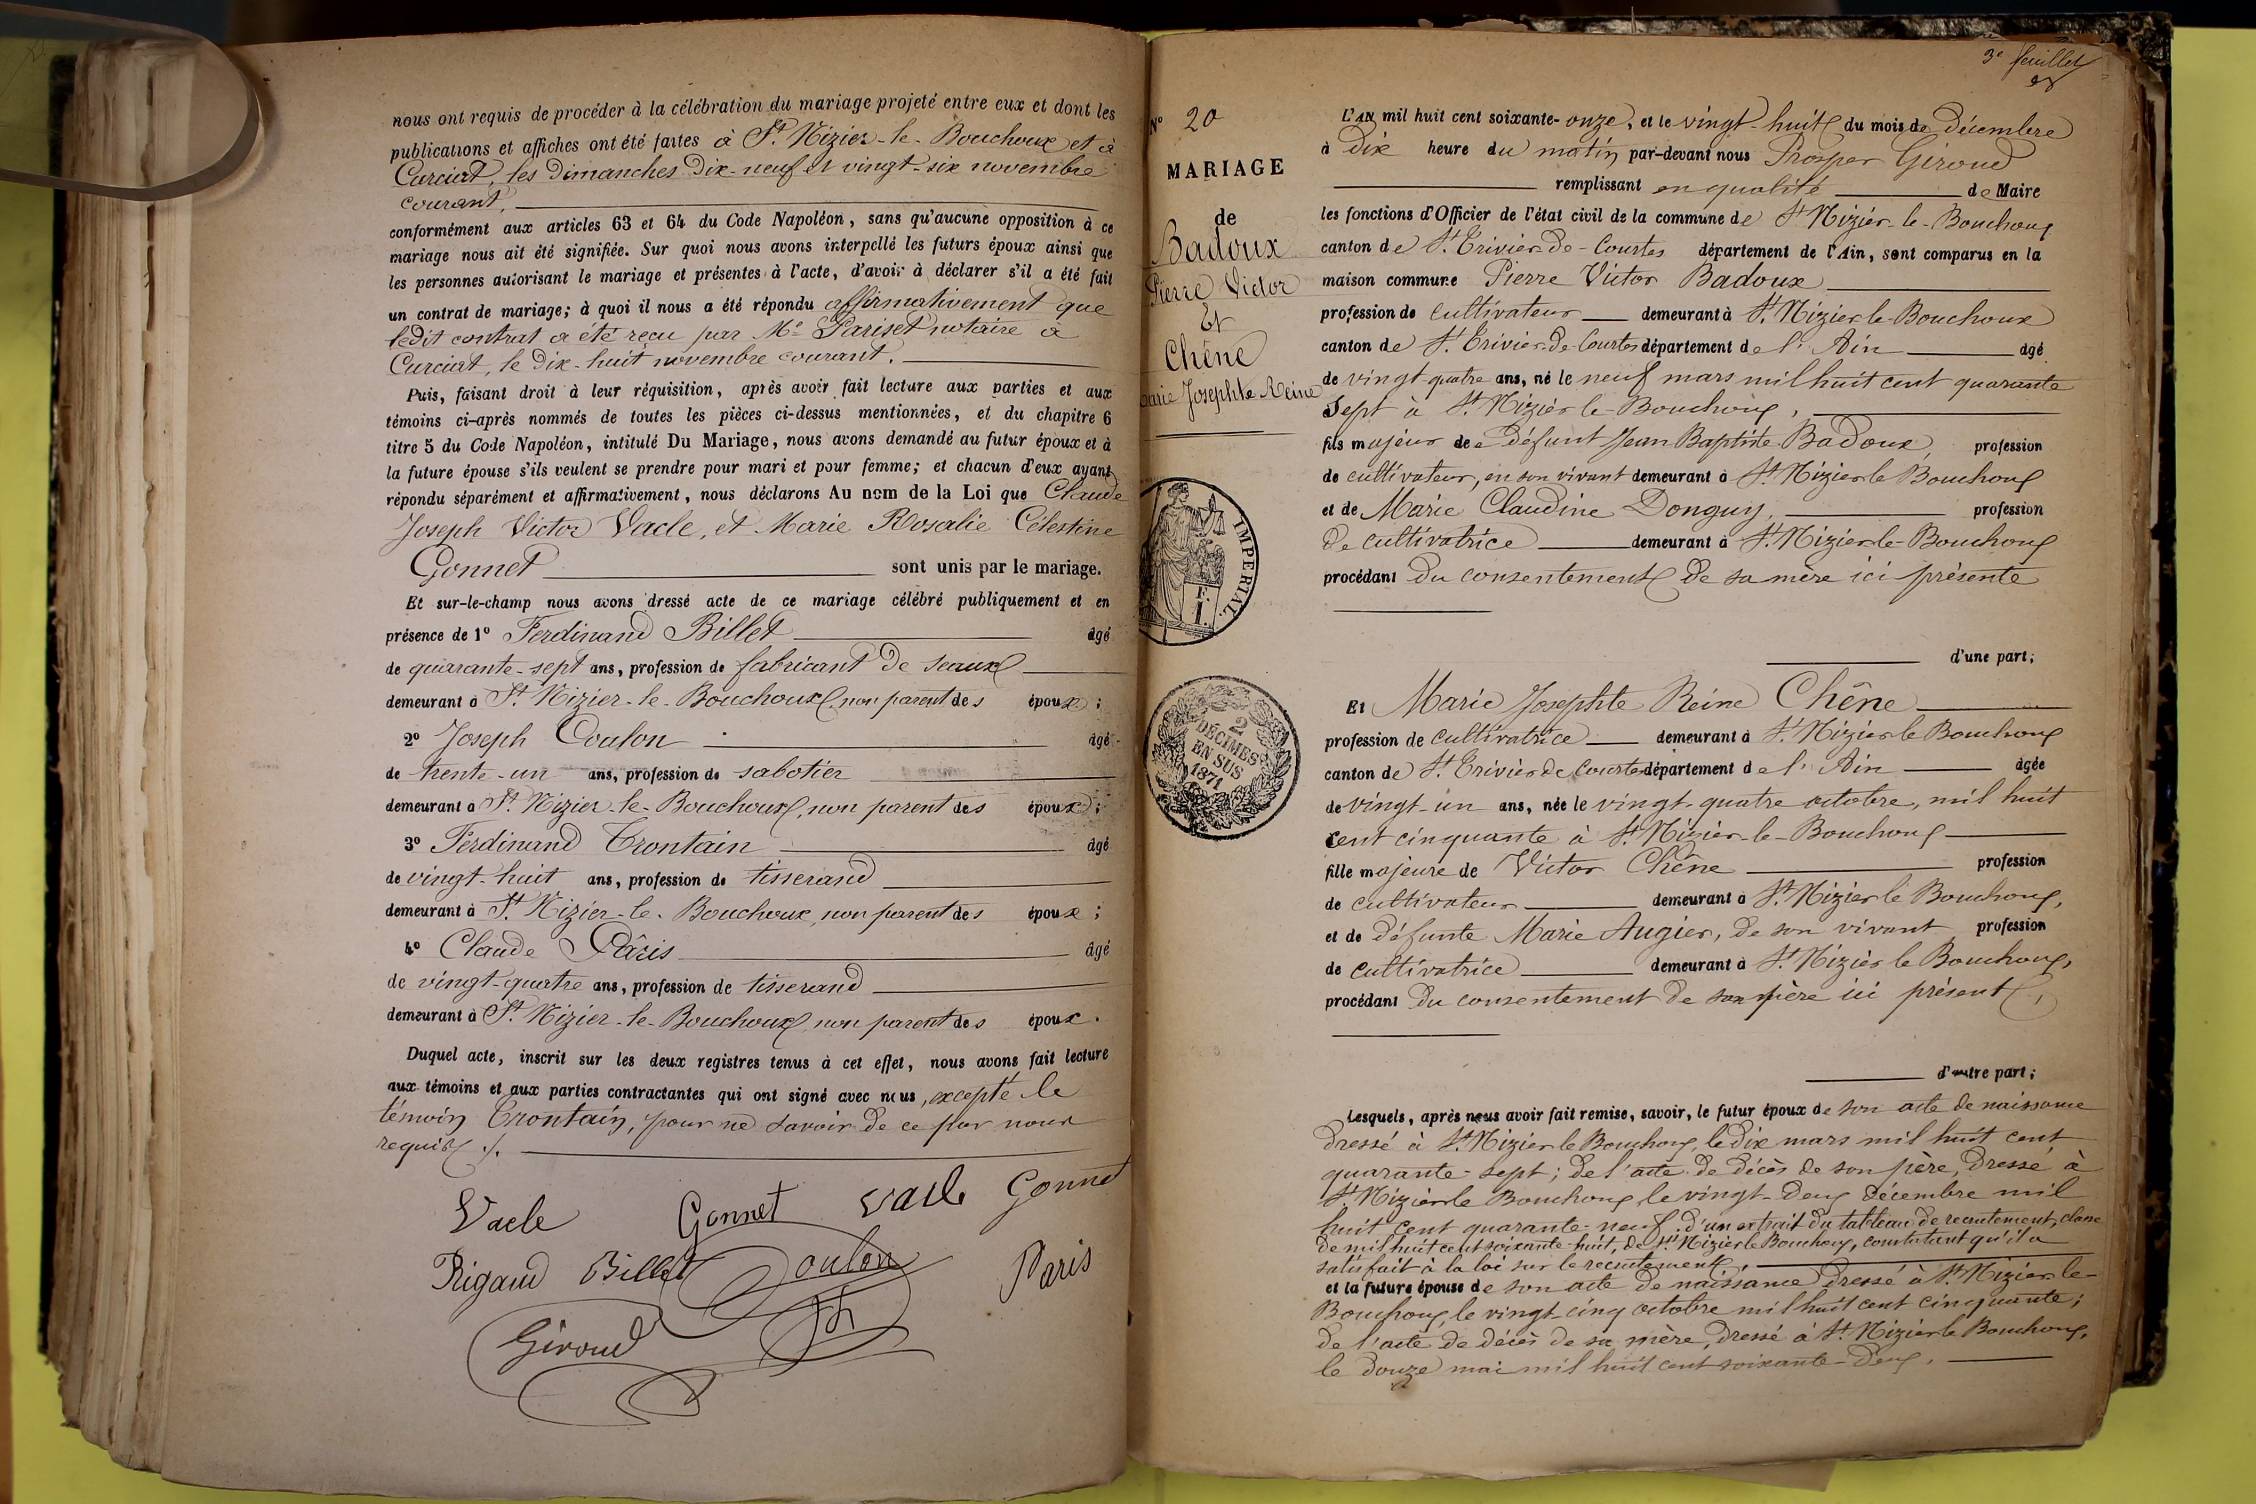 nous ont requis de procéder à la célébration du mariage projeté entre eux et dont les
publications et affiches ont été faites à St. Nizier-le-Bouchoux et à
Curciat, les dimanches dix-neuf et vingt-six novembre
courant.
conformément aux articles 63 et 64 du Code Napoléon, sans qu'aucune opposition à ce
mariage nous ait été signifiée. Sur quoi nous avons interpellé les futurs époux ainsi que
les personnes autorisant le mariage et présentes à l'acte, d'avoir à déclarer s'il a été fait
un contrat de mariage; à quoi il nous a été répondu affirmativement que
ledit contrat a été reçu par Me. Pariset notaire à
Curciat, le dix-huit novembre courant.
Puis, faisant droit à leur réquisition, après avoir fait lecture aux parties et aux
témoins ci-après nommés de toutes les pièces ci-dessus mentionnées, et du chapitre 6
titre 5 du Code Napoléon, intitulé Du Mariage, nous avons demandé au futur époux et à
la future épouse s'ils veulent se prendre pour mari et pour femme; et chacun d'eux ayant
répondu séparément et affirmativement, nous déclarons Au nom de la Loi que Claude
Joseph Victor Vacle, et Marie Rosalie Célestine
Gonnet sont unis par le mariage.
Et sur-le-champ nous avons dressé acte de ce mariage célébré publiquement et en
présence de 1° Ferdinand Billet âgé
de quarante-sept ans, profession de fabricant de seaux
demeurant à St. Nizier-le-Bouchoux, non parent des époux;
2° Joseph Coulon âgé
de trente-un ans, profession de sabotier
demeurant à St. Nizier-le-Bouchoux, non parent des époux;
3° Ferdinand Trontain âgé
de vingt-huit ans, profession de tisserand
demeurant à St. Nizier-le-Bouchoux, non parent des époux;
4° Claude Pâris âgé
de vingt-quatre ans, profession de tisserand
demeurant à St. Nizier-le-Bouchoux, non parent des époux.
Duquel acte, inscrit sur les deux registres tenus à cet effet, nous avons fait lecture
aux témoins et aux parties contractantes qui ont signé avec nous, excepté le
témoin Trontain, pour ne savoir de ce par nous
requis ./.
Vacle Gonnet vacle Gonnet
Rigaud Billet Coulon Paris
Giroud
3e feuillet
N° 20
MARIAGE
de
Badoux
Pierre Victor
Et
Chêne
Marie Josephte Reine
IMPERIAL.
F. I.
2
DÉCIMES
EN SUS
1871
L'AN mil huit cent soixante-onze, et le vingt-huit du mois de Décembre
à dix heure du matin par-devant nous Prosper Giroud
remplissant en qualité de Maire
les fonctions d'Officier de l'état civil de la commune de St Nizier-le-Bouchoux
canton de St. Trivier-de-Courtes département de l'Ain, sont comparus en la
maison commune Pierre Victor Badoux
profession de cultivateur demeurant à St. Nizier le Bouchoux
canton de St. Trivier-de-Courtes département de l'Ain âgé
de vingt-quatre ans, né le neuf mars mil huit cent quarante
sept à St. Nizier le-Bouchoux,
fils majeur de défunt Jean Baptiste Badoux, profession
de cultivateur, en son vivant demeurant à St. Nizier le Bouchoux
et de Marie Claudine Donguy, profession
de cultivatrice demeurant à St. Nizier-le-Bouchoux
procédant du consentement de sa mère ici présente
d'une part;
Et Marie Josephte Reine Chêne
profession de cultivatrice demeurant à St. Nizier le Bouchoux
canton de St. Trivier de Courtes département de l'Ain âgée
de vingt-un ans, née le vingt-quatre octobre, mil huit
cent cinquante à St. Nizier-le-Bouchoux
fille majeure de Victor Chêne profession
de cultivateur demeurant à St. Nizier le Bouchoux,
et de défunte Marie Augier, de son vivant profession
de cultivatrice demeurant à St. Nizier le Bouchoux,
procédant du consentement de son père ici présent,
d'autre part;
Lesquels, après nous avoir fait remise, savoir, le futur époux de son acte de naissance
dressé à St. Nizier le Bouchoux, le dix mars mil huit cent
quarante-sept; de l'acte de décès de son père, dressé à
St. Nizier le Bouchoux le vingt-deux décembre mil
huit cent quarante-neuf, d'un extrait du tableau de recrutement, classe
de mil huit cent soixante-huit, de St. Nizier le Bouchoux, constatant qu'il a
satisfait à la loi sur le recrutement,
et la future épouse de son acte de naissance dressé à St. Nizier-le-
Bouchoux, le vingt-cinq octobre mil huit cent cinquante;
de l'acte de décès de sa mère, dressé à St. Nizier le Bouchoux,
le douze mai mil huit cent soixante-deux.